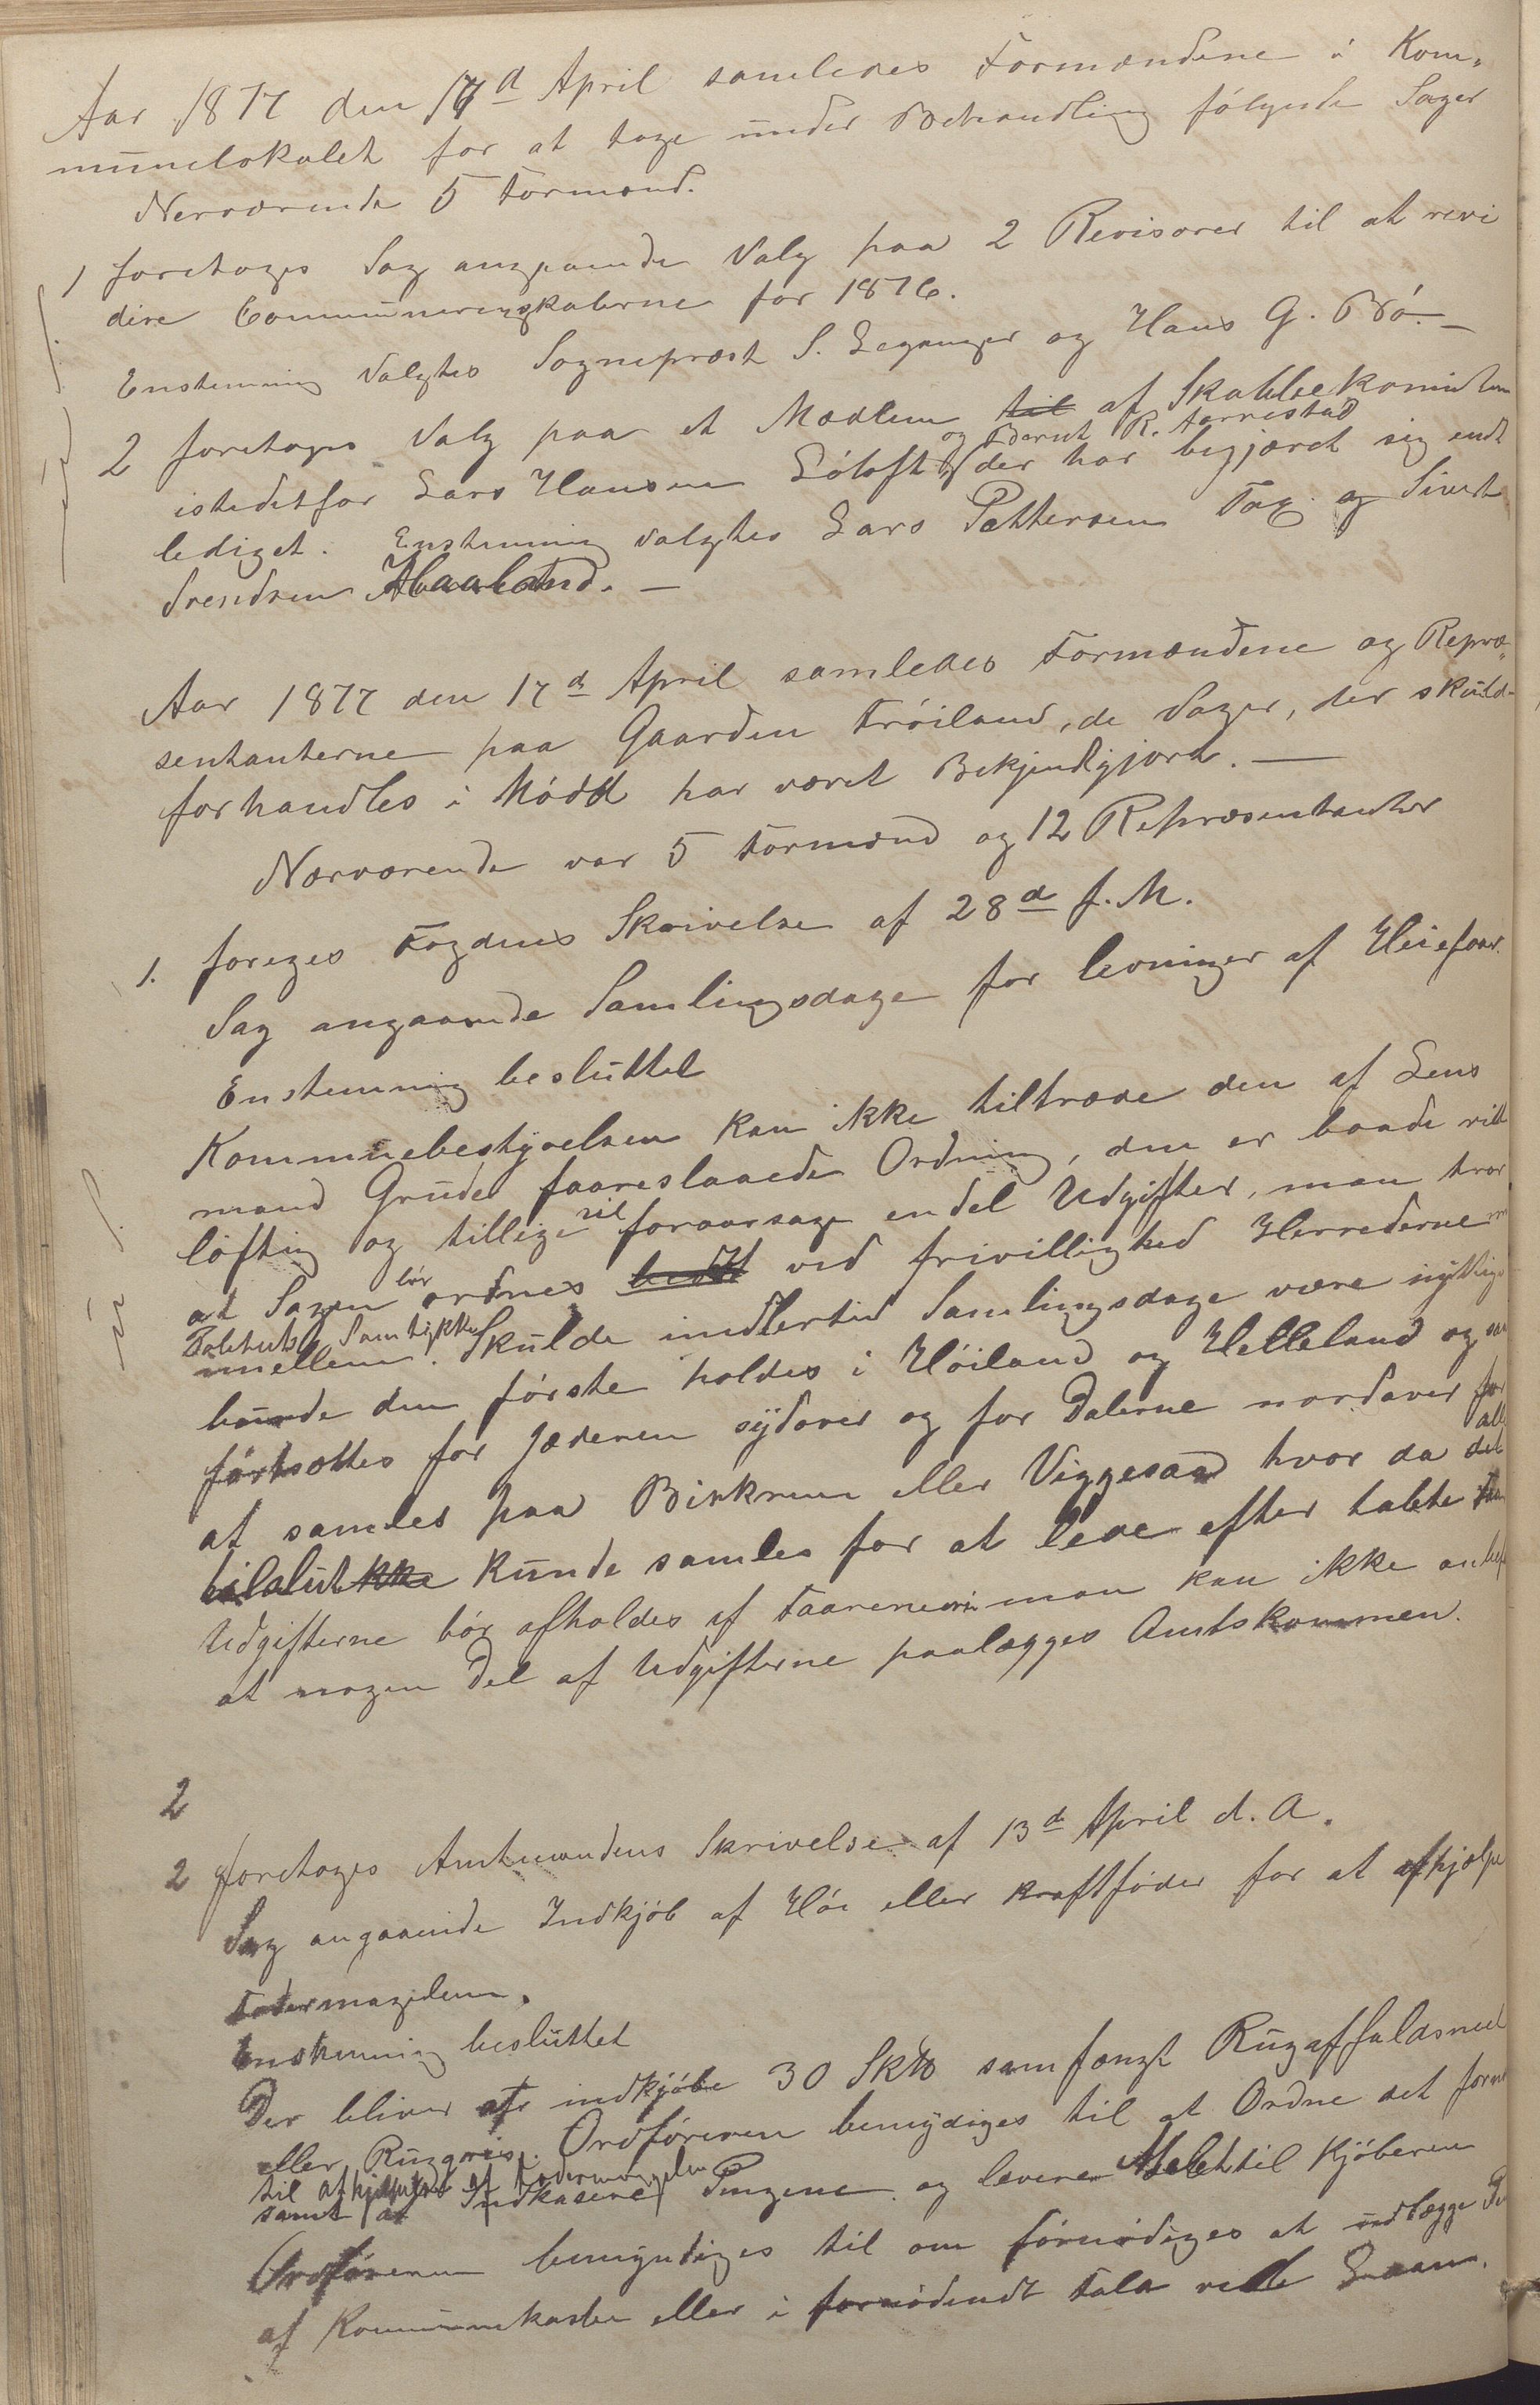 Aar 1877 den 17d April samledes Formændene i Kom-
munelokalet for at tage under Behandling følgende Sager
Nerværende 5 Formænd.
1 foretoges Sag angaaende Valg paa 2 Revisorer til at revi
dere Communeregnskaberne for 1876.
Enstemmig valgtes Sognepræst S. Leganger og Hans G. Brø. —
2 foretoges Valg paa et Medlem til af Skattekomisionen
og Bernt R. Aarrestad
istedetfor Lars Hansen Löloft der har begjæret sig endt
lediget. Enstemmig valgtes Lars Pettersen Tax og Sivert
Svendsen Haaland. —
Aar 1877 den 17d April samledes Formændene og Repræ-
sentanterne paa Gaarden Fröiland, de Sager, der skuld-
forhandles i Mödd har været Bekjendtgjort. —
Nærværende var 5 Formænd og 12 Repræsentanter
1. foreges Fogdens Skrivelse af 28d f. M.
Sag angaaende Samlingsdage for levninger af Heiefaar.
Enstemmig besluttet
Kommunebestyrelsen kan ikke tiltræde den af Lens
mand Grude faareslaaede Ordning, den er baade vidt
löftig og tillige vil foraarsage endel Udgifter, man tror
at Sagen bör ordnes bedst ved frivillighed Herrederne
imellem. Skulde imidlertid Samlingsdage være nyttige
burde den förste holdes i Höiland og Helleland og saa
fortsættes for Jæderen sydover og for Dalerne nordover for
at samles paa Birkrem eller Viggesaad hvor da det alt
tilslut kke kunde samles for at lede efter tabte Faar
Udgifterne bör afholdes af Faareeierne man kan ikke anbef
at nogen Del af Udgifterne paalægges Amtskommen.
2
2 foretoges Amtmandens Skrivelse af 13d April d. A.
Sag angaaende Indkjöb af Höi eller kraftföder for at afhjælpe
Fodermangelen.
Enstemmig besluttet
Der bliver at indkjöbe 30 Skto samfængt Rugaffaldsmeel
eller Ruggris. Ordföreren bemyndiges til at Ordne det fornö
til afhjælpelse af Fodermangelen
samt at Indkasere Pengene og levere Melet til Kjöberen
Ordföreren bemyndiges til om fornödiges at udlægge Pe
af Kommunekassen eller i fornödendt Fald ved Laan.